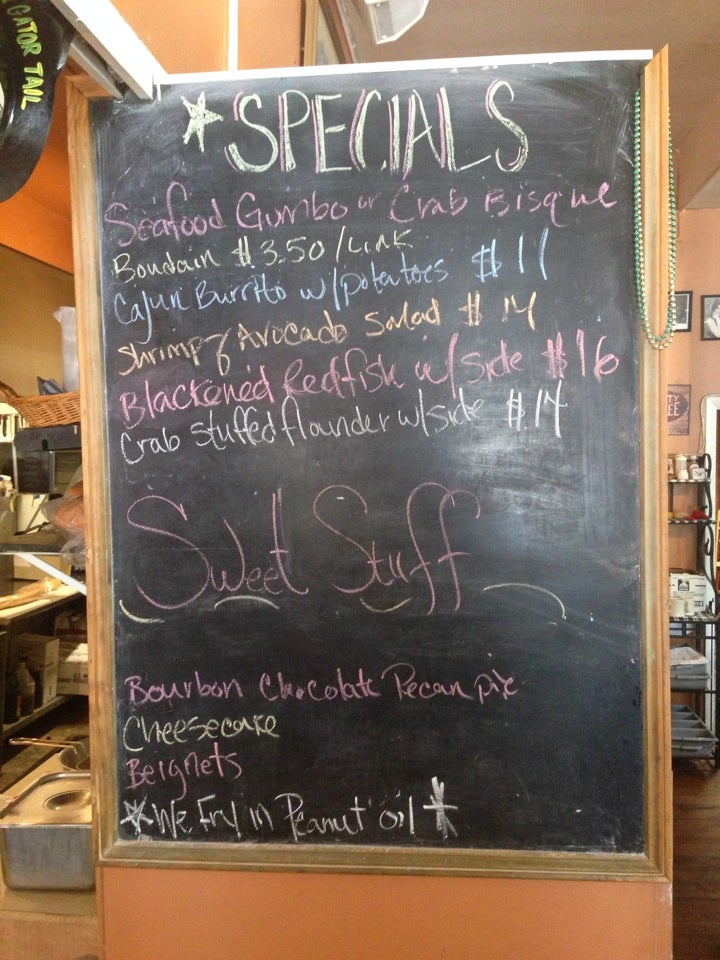 GATOR TAIL
*SPECIALS
Seafood Gumbo or Crab Bisque
Boudain $3.50/Link
Cajun Burrito w/potatoes $11
Shrimp & Avocado Salad $14
Blackened Redfish w/side $16
Crab stuffed flounder w/side $14
Sweet Stuff
Bourbon Chocolate Pecan pie
Cheesecake
Beignets
*We Fry in Peanut oil*